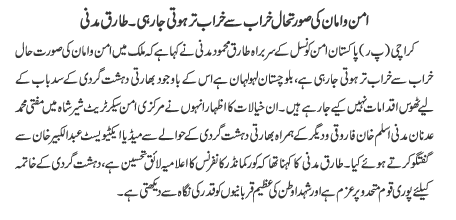 امن وامان کی صورتحال خراب سے خراب تر ہوتی جارہی۔ طارق مدنی
کراچی (پ ر) پاکستان امن کونسل کے سربراہ طارق محمود مدنی نے کہا ہے کہ ملک میں امن وامان کی صورت حال
خراب سے خراب تر ہوتی جارہی ہے، بلوچستان لہولہان ہے اس کے باوجود بھارتی دہشت گردی کے سدباب کے
لیے ٹھوس اقدامات نہیں کیے جارہے ہیں۔ ان خیالات کا اظہار انہوں نے مرکزی امن سیکرٹریٹ شیر شاہ میں مفتی محمد
عدنان مدنی اسلم خان فاروقی ودیگر کے ہمراہ بھارتی دہشت گردی کے حوالے سے میڈیا ایکٹیویسٹ عبدالکبیر خان سے
گفتگو کرتے ہوئے کیا۔ طارق مدنی کا کہنا تھا کہ کور کمانڈر کانفرنس کا اعلامیہ لائق تحسین ہے، دہشت گردی کے خاتمہ
کیلئے پوری قوم متحد و پرعزم ہے اور شہداء وطن کی عظیم قربانیوں کو قدر کی نگاہ سے دیکھتی ہے۔